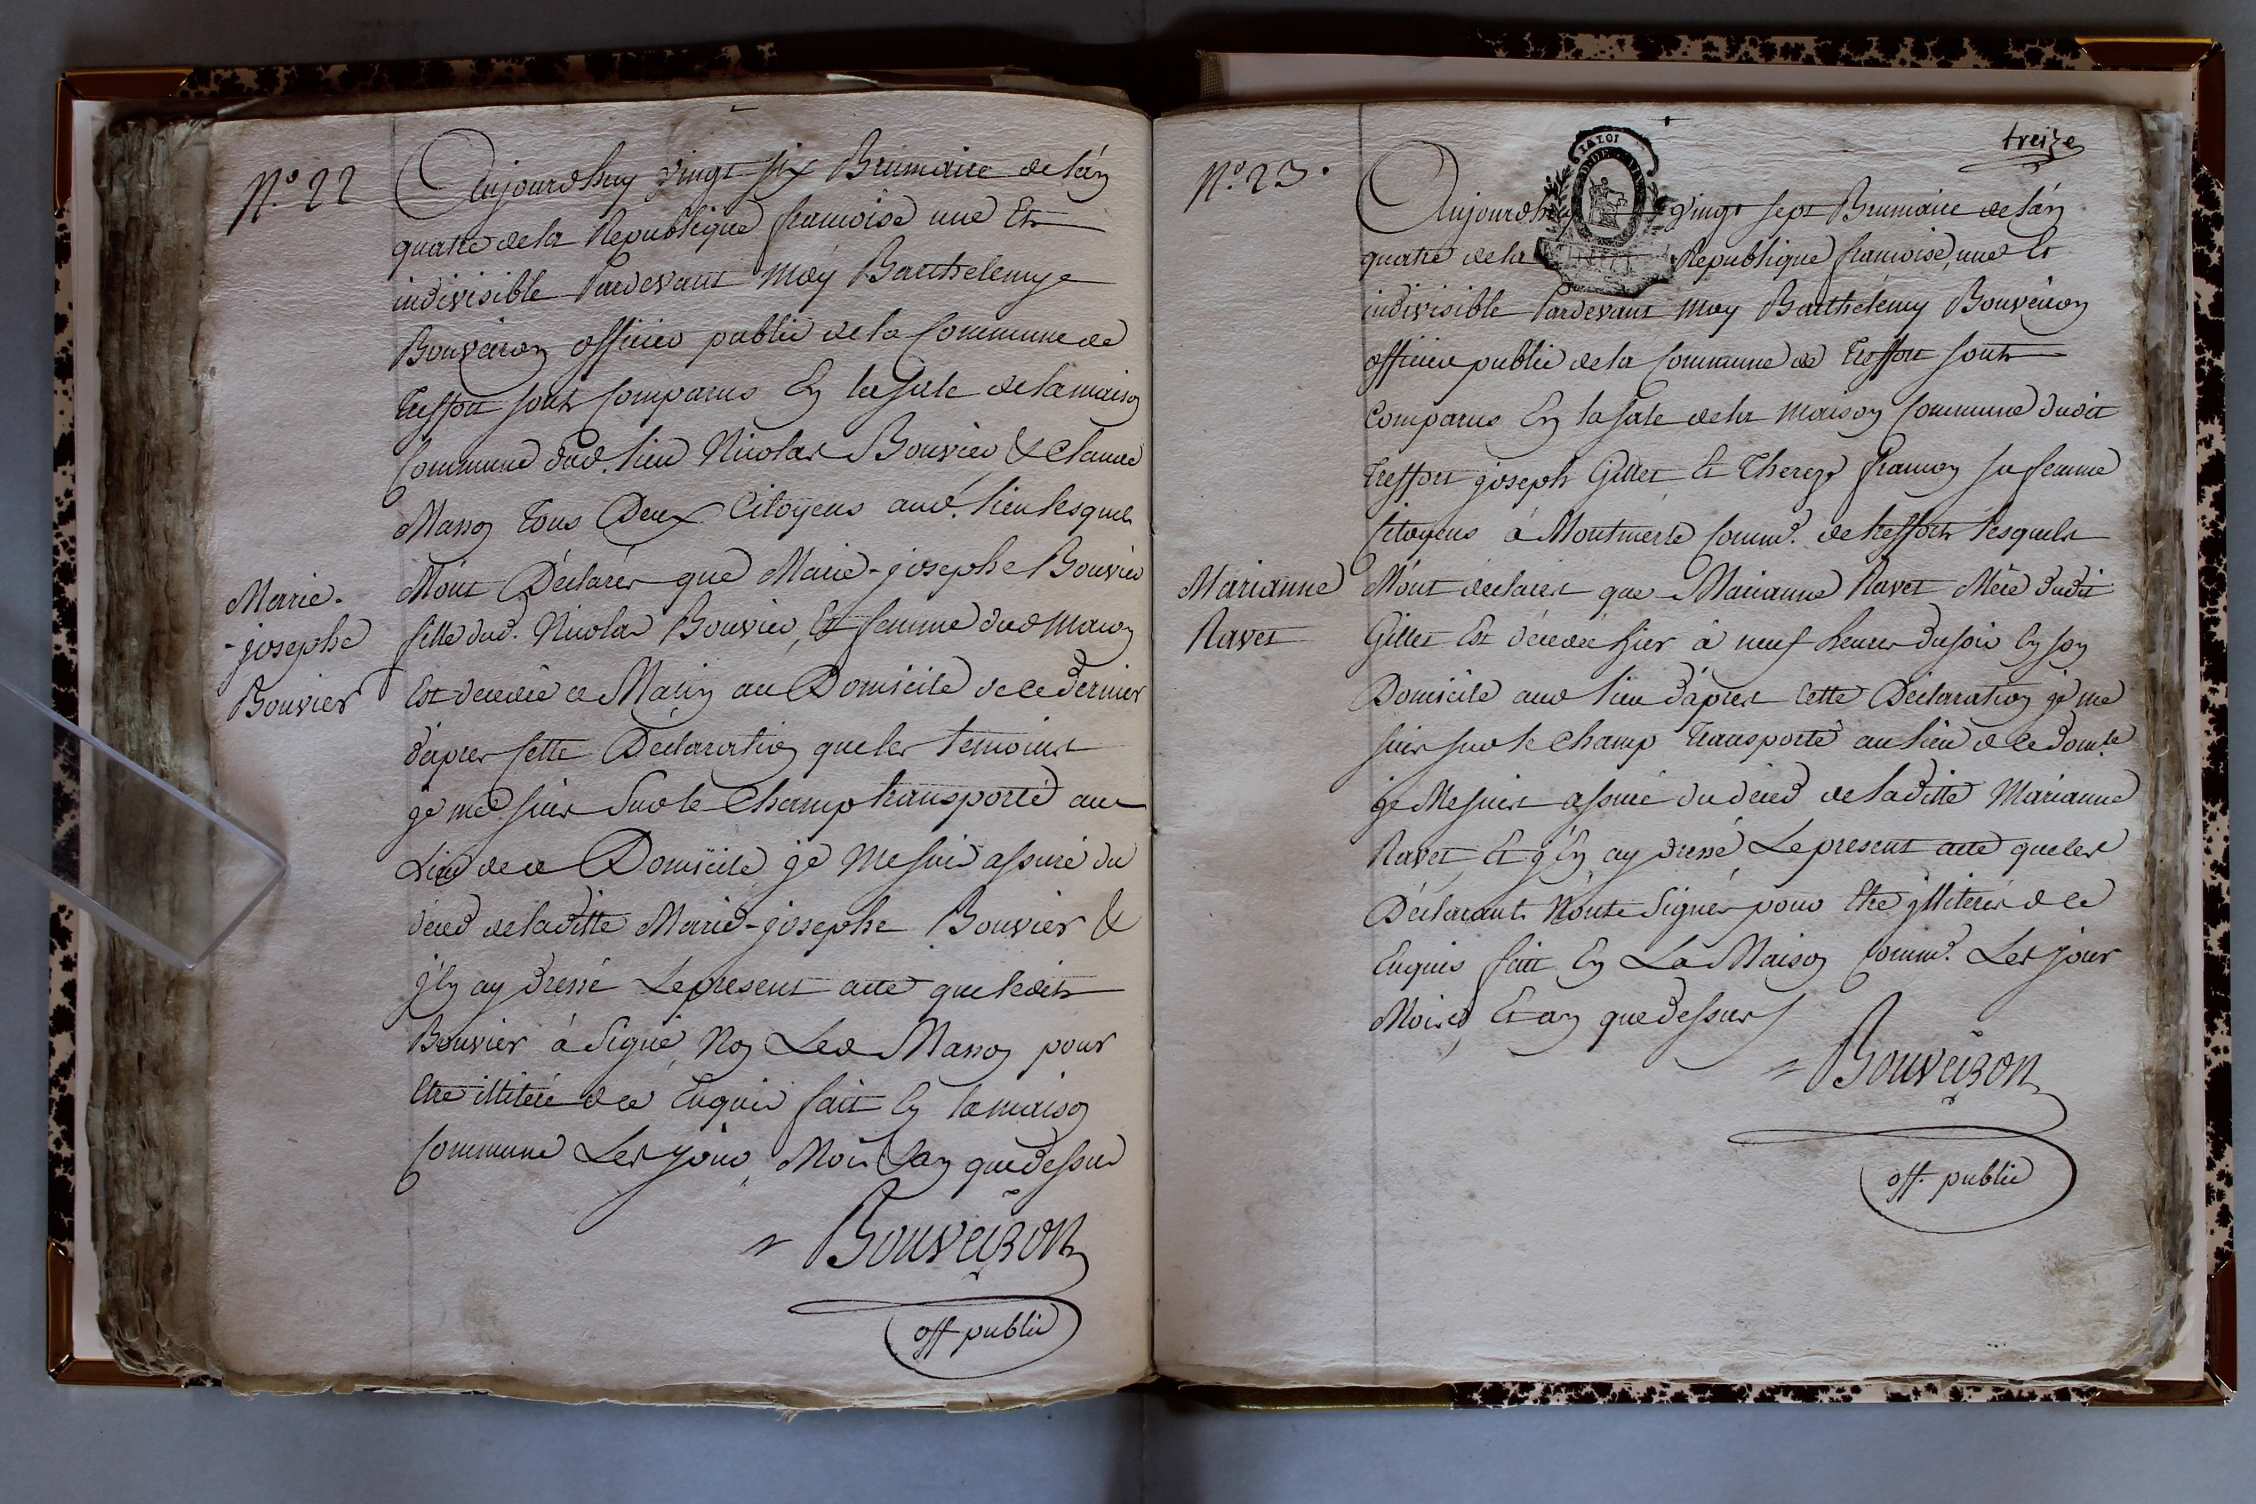 N.° 22
Aujourdhuy vingt six Brumaire de l'án
quatre de la Republique francoise une Et
indivisible Pardevant Moy Barthelemy
Bouveiron officier public de la Commune de
Treffort sont Comparus En la Sale de la maison
Commune dud. lieu Nicolas Bouvier & Claude
Masson tous Deux Citoyens aud. lieu lesquels
M'ont Déclarés que Marie-josephe Bouvier
fille dud. Nicolas Bouvier, Et femme dud Macon
Est decedée ce Matin au Domicile de ce dernier
d'apres Cette Déclaration que les temoins
je me suis Sur le Champ transporté au
Lieu de ce Domicile, je Me suis assuré du
déced de laditte Marie-josephe Bouvier &
j'En ay dressé Le present acte que ledit
Bouvier à Signé, Non Led Masson pour
Etre illiteré de ce Enquis fait En la maison
Commune Les jour, Mois & an que dessus
Marie-
-josephe
Bouvier
Bouveiron
off public
treize
N.° 23.
Aujourdhuy vingt sept Brumaire de l'án
quatre de la Republique francoise, une Et
indivisible Pardevant Moy Barthelemy Bouveiron
officier public de la Commune de Treffort sont
Comparus En la Sale de la Maison Commune dudit
Treffort joseph Gillet Et Therese sa femme
Citoyens à Montmerle Comm.e de treffort lesquels
M'ont declarés que Marianne Ravet Mère dudit
Gillet Est décedée hier à neuf heures du soir En son
Domicile aud lieu d'apres Cette Déclaration je me
suis sur le Champ Transporté au lieu de ce dom.le
je Me suis assuré du déced de laditte Marianne
Ravet, Et j'En ay dressé, Le present acte que les
Déclarants N'onts Signés pour Etre jlliterés de ce
Enquis fait En La Maison Comm.e Les jour
Mois, Et an que dessus
Marianne
Ravet
Bouveiron
off. public